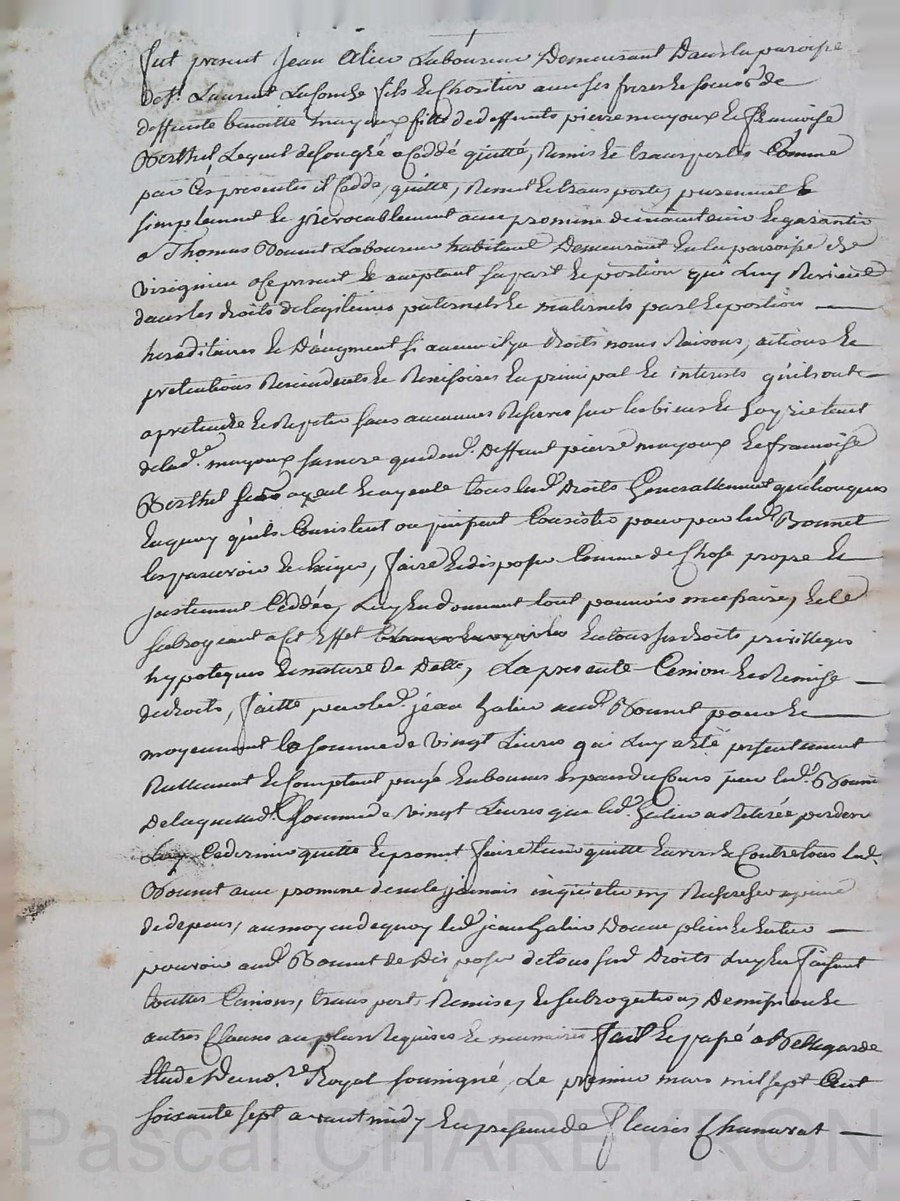 fut present jean alier Laboureur Demeurant Dans la paroisse
de St. Laurent La Conche fils et heritier avec ses freres et soeurs de
deffunte benoitte mayoux fille de deffunts pierre mayoux et françoise
Berthet Lequel de son gré a Ceddé quitté, Remis et transporté Comme
par Ces presentes il Cedde, quitte, Remet et transporte, purement et
simplement et jrrevocablement avec promesse de maintenir et garantir
a Thomas Bonnet Laboureur habitant Demeurant en la paroisse de
Virigneu a Ce present et acceptant sa part et portion qui Luy Revient
dans les droits de legitimes paternels et maternels part et portion
hereditaires et D'augment si aucun il y a droits noms Raisons, actions et
pretentions Rescindents et Rescisoires En principal et interests qu'il sont
a pretendre et Repeter sans aucunnes Reserves sur les biens et hoyrie tant
de lad. mayoux sa mere que desd. Deffunt pierre mayoux et françoise
Berthet ses ayeul et ayeule tous lesd. Droits Generallement quelconques
En quoy qu'ils Consistent ou puissent Consister pour par led. Bonnet
les percevoir et Exiger, faire et disposer Comme de Chose propre et
justement Ceddée, Luy En donnant tout pouvoir necessaire, et le
subrogeant a Cet Effet En tous ses droits privilleges
hypoteques et nature de Dette, La presente Cession et Remise
de droits, faitte par led. jean halier aud. Bonnet pour et
moyennant la somme de vingt Livres qui Luy a Eté presentement
Reellement et Comptant payé En bonnes Especes du Cours par led. Bonnet
De laquelle d. somme de vingt Livres que led. halier a Retirée par devers
Luy Ce dernier quitte et promet faire tenir quitte Envers et Contre tous led.
Bonnet avec promesse de ne le jamais inquieter ny Rechercher a peine
de depens, au moyen de quoy led. jean halier Donne plein et Entier
pouvoir aud. Bonnet de Disposer de tous sesd. Droits Luy En faisant
touttes Cessions, transports Remises, et subrogations Demission et
autres Clauses au plus Requises et necessaires fait et passé a Bellegarde
Etude Du no.re Royal soussigné, Le premier mars mil sept Cent
soixante sept avant midy En presence de fleuris Chanavat
Pascal CHAREYRON